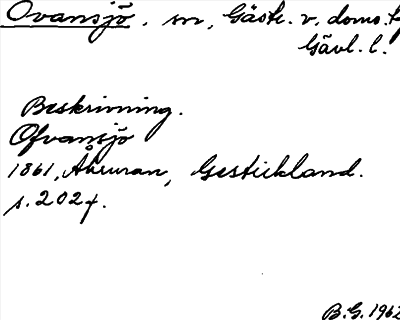 Ovansjö, sn, Gästr. v. doms.
Gävl. l.
Beskrivning.
Ofvansjö
1861, Åhrman, Gestrikland.
s. 202f.
B.G. 1962